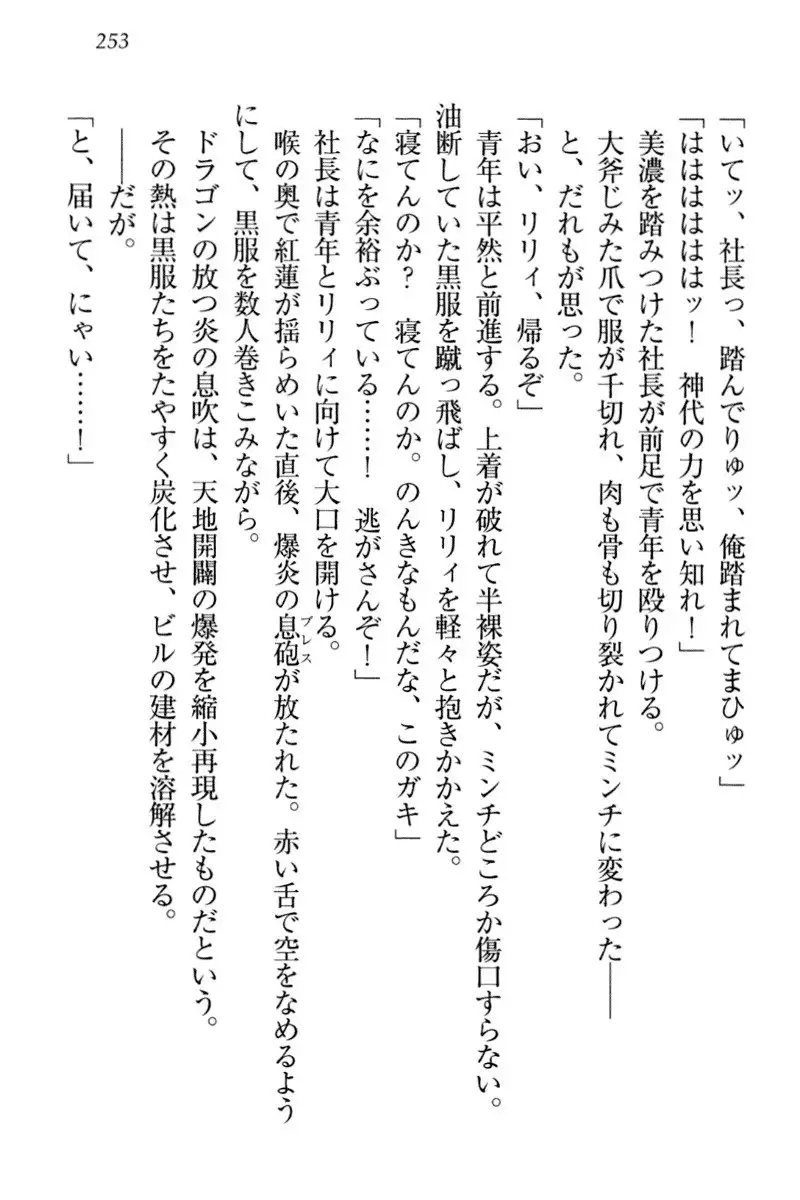 253
「いてッ、社長っ、踏んでりゅッ、俺踏まれてまひゅッ」
「はははははッ！　神代の力を思い知れ！」
美濃を踏みつけた社長が前足で青年を殴りつける。
大斧じみた爪で服が千切れ、肉も骨も切り裂かれてミンチに変わった――
と、だれもが思った。
「おい、リリィ、帰るぞ」
青年は平然と前進する。上着が破れて半裸姿だが、ミンチどころか傷口すらない。
油断していた黒服を蹴っ飛ばし、リリィを軽々と抱きかかえた。
「寝てんのか？　寝てんのか。のんきなもんだな、このガキ」
「なにを余裕ぶっている……！　逃がさんぞ！」
社長は青年とリリィに向けて大口を開ける。
喉の奥で紅蓮が揺らめいた直後、爆炎の息砲ブレスが放たれた。赤い舌で空をなめるよう
にして、黒服を数人巻きこみながら。
ドラゴンの放つ炎の息吹は、天地開闢の爆発を縮小再現したものだという。
その熱は黒服たちをたやすく炭化させ、ビルの建材を溶解させる。
――だが。
「と、届いて、にゃい……！」